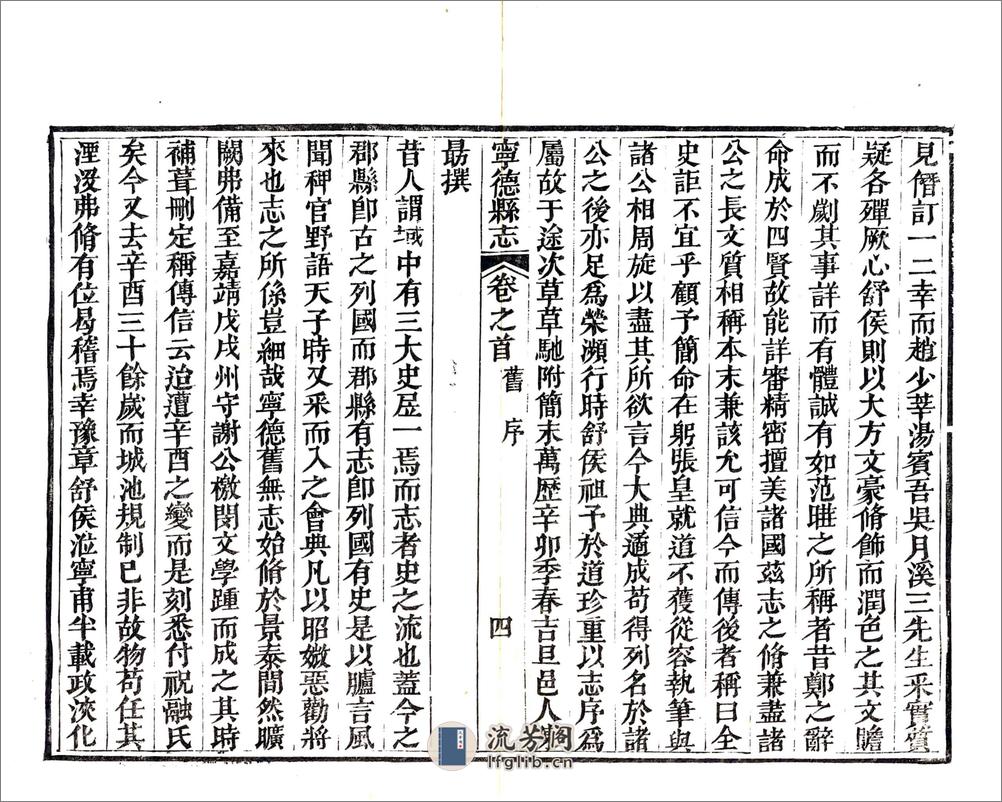 見僭訂一二幸而趙少莘湯賓吾吳月溪三先生采實質
疑各殫厥心舒侯則以大方文豪脩飾而潤色之其文贍
而不劌其事詳而有體誠有如范雎之所稱者昔鄭之辭
命成於四賢故能詳審精密擅美諸國茲志之脩兼盡諸
公之長文質相稱本末兼該允可信今而傳後者稱曰全
史詎不宜乎顧予簡命在躬張皇就道不獲從容執筆與
諸公相周旋以盡其所欲言今大典適成苟得列名於諸
公之後亦足爲榮瀕行時舒侯祖予於道珍重以志序爲
屬故于途次草草馳附簡末萬歷辛卯季春吉旦邑人
寧德縣志 卷之首 舊序 四
勗撰
昔人謂域中有三大史居一焉而志者史之流也蓋今之
郡縣卽古之列國而郡縣有志卽列國有史是以臚言風
聞稗官野語天子時又采而入之會典凡以昭媺惡勸將
來也志之所係豈細哉寧德舊無志始脩於景泰間然曠
闕弗備至嘉靖戊戌州守謝公檄閔文學踵而成之其時
補葺刪定稱傳信云迨遭辛酉之變而是刻悉付祝融氏
矣今又去辛酉三十餘歲而城池規制已非故物苟任其
湮没弗脩有位曷稽焉幸豫章舒侯涖寧甫半載政浹化
流芳阁
lfglib.cn